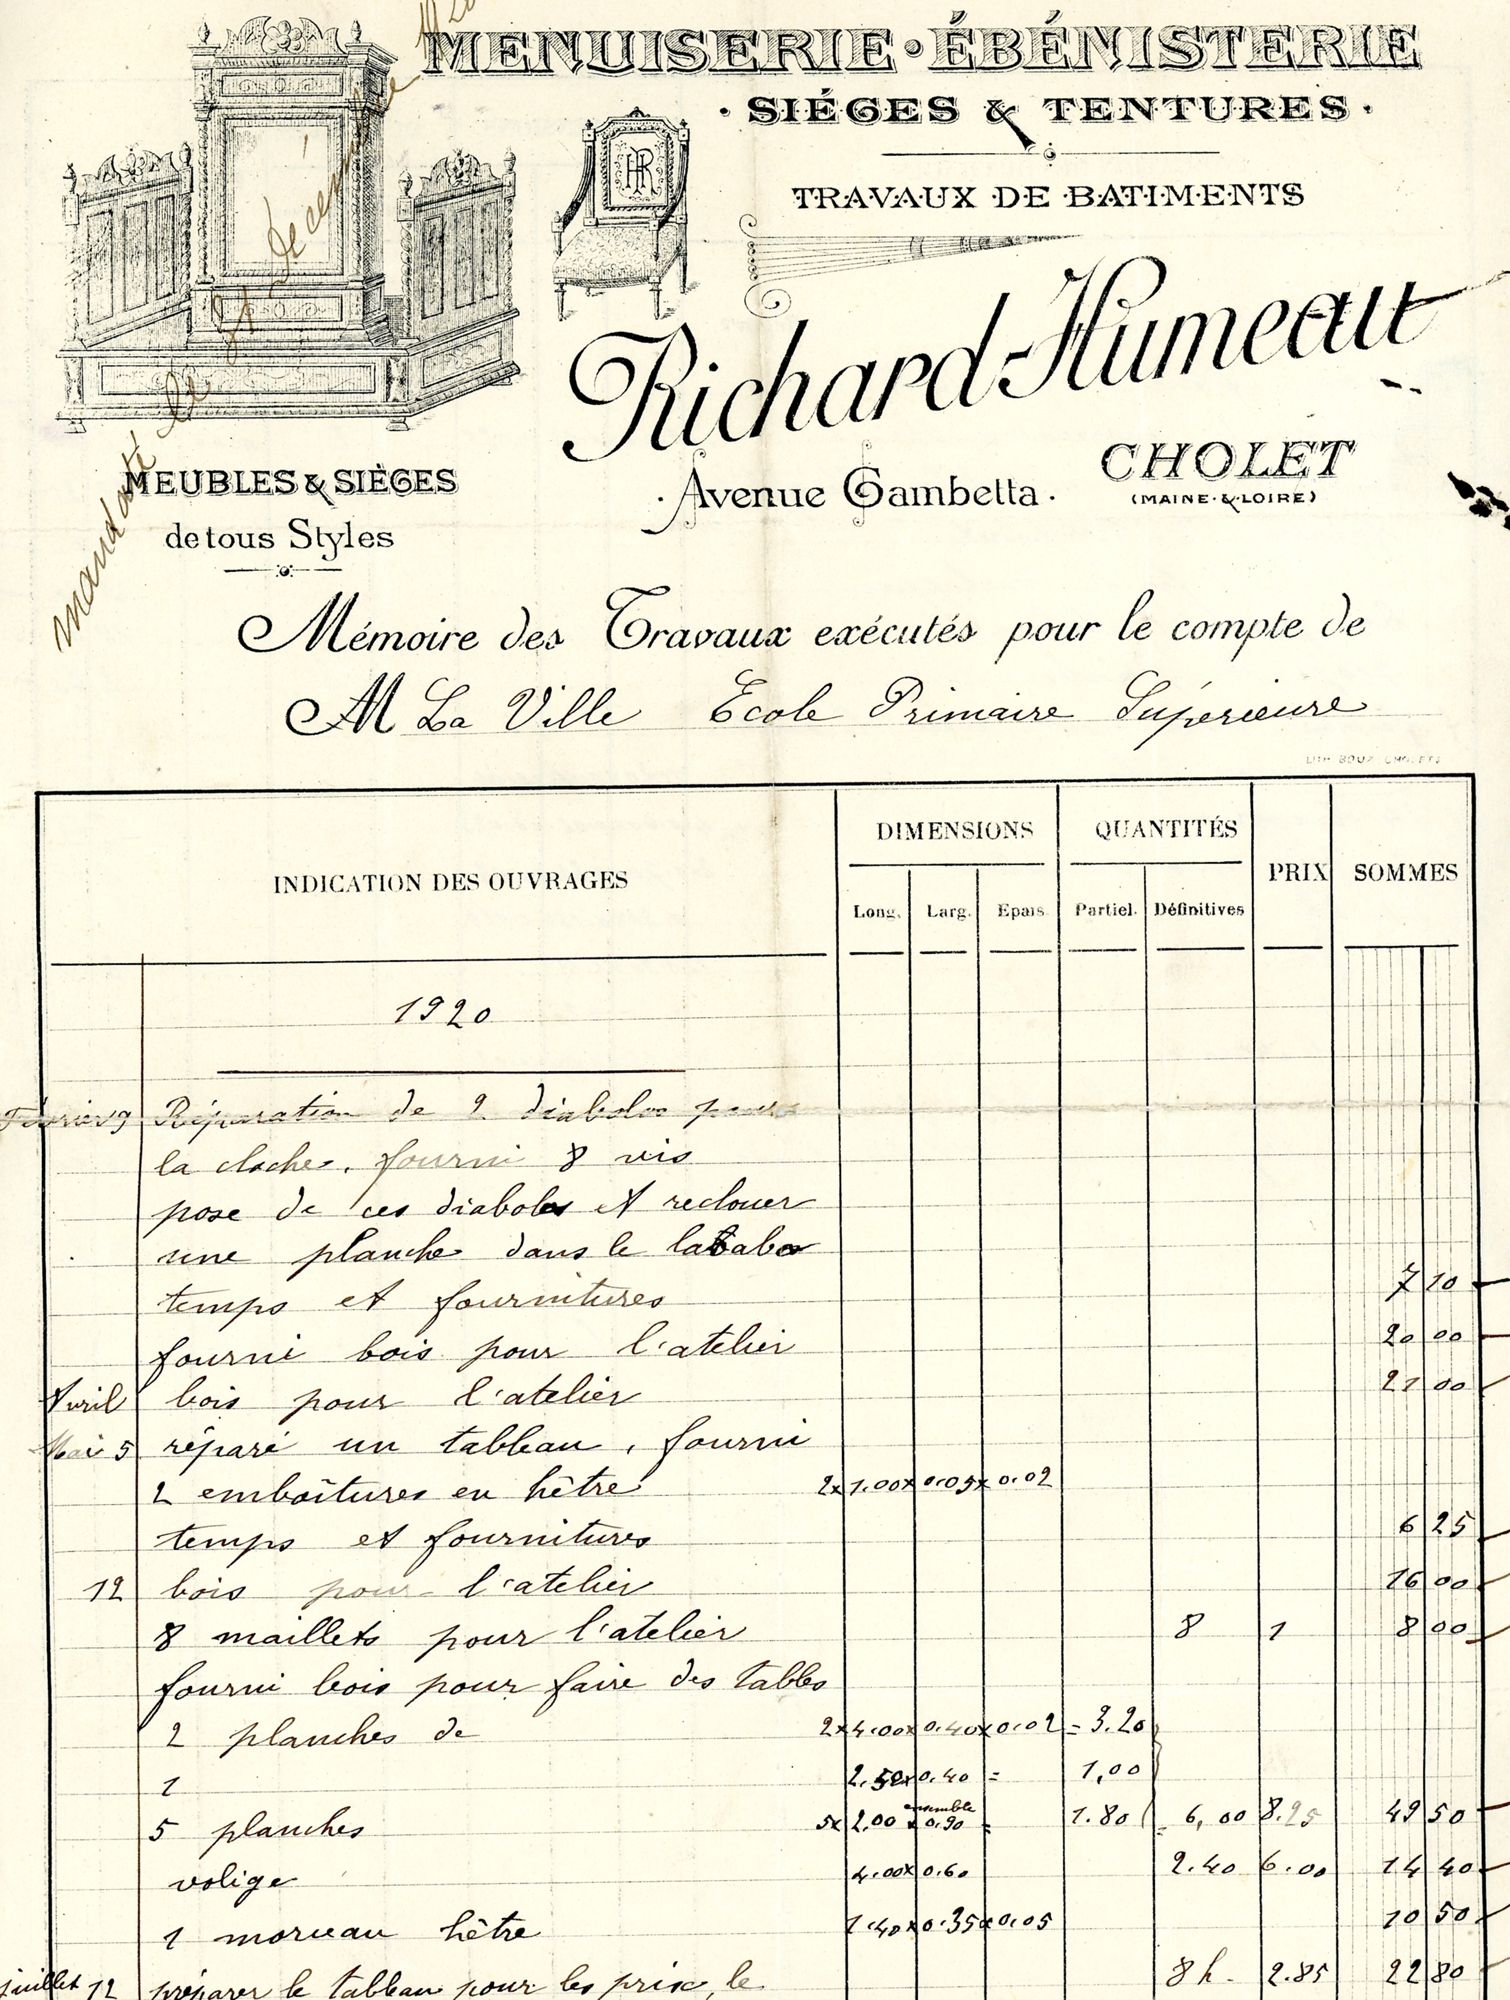 MENUISERIE · ÉBÉNISTERIE
· SIÉGES & TENTURES ·
TRAVAUX DE BATIMENTS
HR
Richard-Humeau
· Avenue Gambetta ·
CHOLET
(MAINE & LOIRE)
MEUBLES & SIÈGES
de tous Styles
mandaté le 31 décembre
Mémoire des Travaux exécutés pour le compte de
M La Ville Ecole Primaire Supérieure
INDICATION DES OUVRAGES DIMENSIONS QUANTITÉS PRIX SOMMES
Long. Larg. Epais. Partiel. Définitives
1920
Février 9 Réparation de 2 diabolos pour
la cloche, fourni 8 vis
pose de ces diabolos et reclouer
une planche dans le
temps et fournitures 7 10
fourni bois pour l'atelier 20 00
Avril bois pour l'atelier 21 00
Mai 5 réparé un tableau, fourni
2 emboîtures en hêtre 2x 1.00x 0.05x 0.02
temps et fournitures 6 25
12 bois pour l'atelier 16 00
8 maillets pour l'atelier 8 1 8 00
fourni bois pour faire des tables
2 planches de 2x 4.00x 0.40x 0.02 = 3.20
1 2.50x 0.40 = 1,00
5 planches 5x 2.00 x ensemble 0.90 = 1.80 = 6,00 8.25 49 50
volige 4.00x 0.60 2.40 6.00 14 40
1 morceau hêtre 1.40x 0.35x 0.05 10 50
juillet 12 préparer le tableau pour les prix, le 8 h. 2.85 22 80